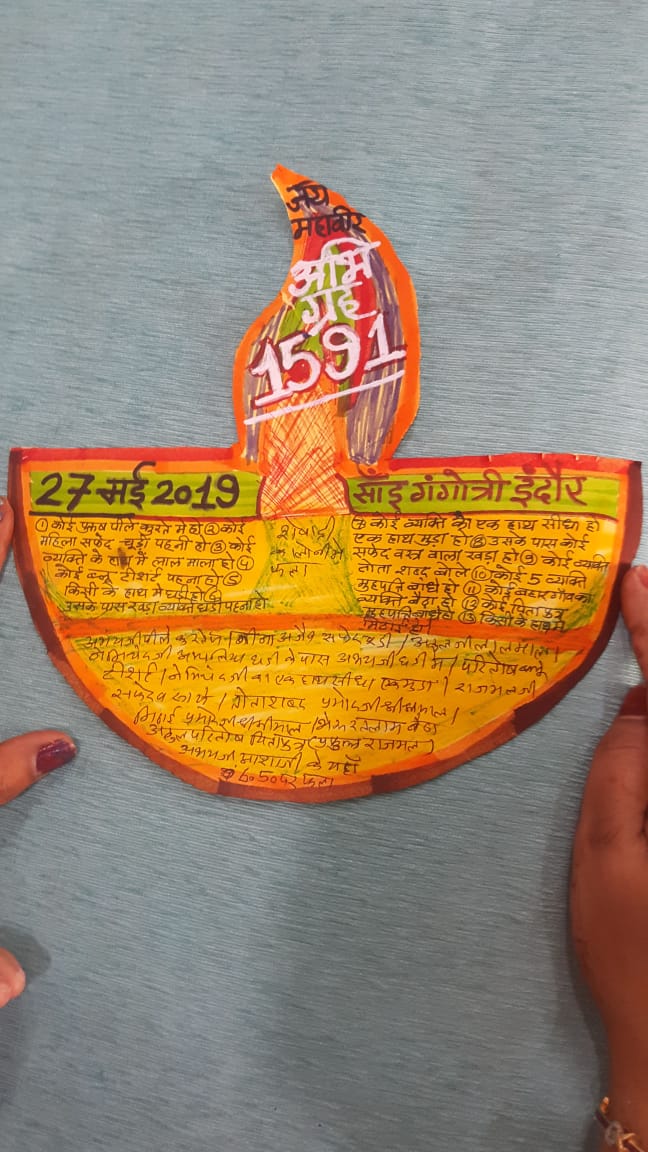 जय
महावीर
अभि
ग्रह
1591
27 मई 2019
साँई गंगोत्री इंदौर
① कोई पुरुष पीले कुरते में हो ② कोई
महिला सफेद चूड़ी पहनी हो ③ कोई
व्यक्ति के हाथ में लाल माला हो ④
कोई ब्लू टीशर्ट पहना हो ⑤
किसी के हाथ में घड़ी हो ⑥
उसके पास खड़ा व्यक्ति घड़ी पहना हो
फला
कोई व्यक्ति का एक हाथ सीधा हो
एक हाथ मुड़ा हो ⑧ उसके पास कोई
सफेद वस्त्र वाला खड़ा हो ⑨ कोई व्यक्ति
तोता शब्द बोले ⑩ कोई 5 व्यक्ति
मुहपत्ति बांधे हो ⑪ कोई बाहर गाँव का
व्यक्ति बैठा हो ⑫ कोई पिता पुत्र
मुहपत्ति बांधे हो ⑬ किसी के हाथ में
मिठाई हो
अभयजी पीले कुर्ते में / सफेद चूड़ी / लाल माला /
के पास अभयजी घड़ी में / परितोष ब्लू
टीशर्ट / जी का एक हाथ सीधा एक मुड़ा / राजमलजी
सफेद वस्त्र में / तोता शब्द प्रमोदजी श्रीश्रीमाल /
मिठाई प्रमोदजी श्रीश्रीमाल / रतलाम बैठा
परितोष पिता पुत्र राजमल /
अभयजी माराजी के यहाँ
6.50 पर फला